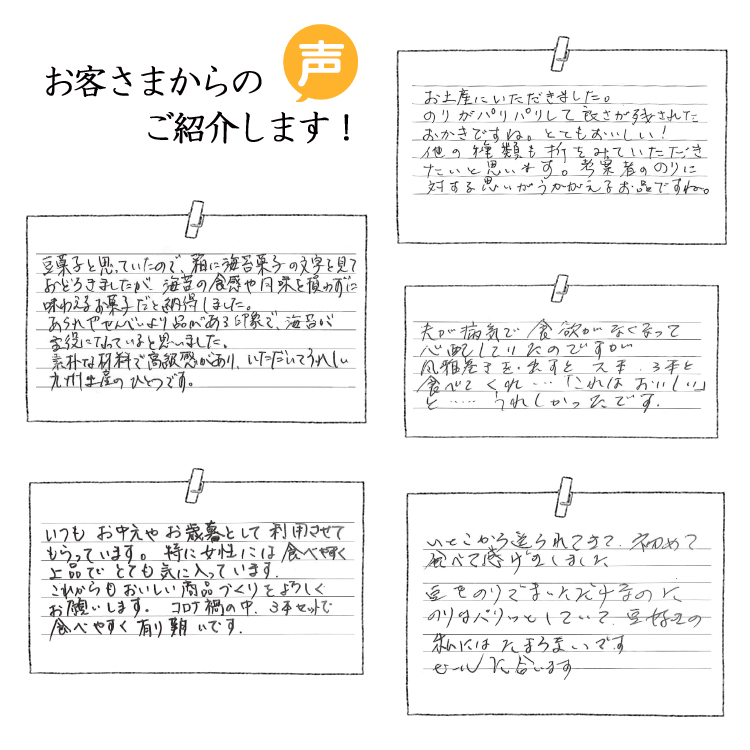 お客さまからの 声
ご紹介します！
お土産にいただきました。
のりがパリパリして良さが残された
おかきですね。とてもおいしい！
他の種類も折をみていただき
たいと思います。考案者ののりに
対する思いがうかがえるお品ですね。
豆菓子と思っていたので、箱に海苔菓子の文字を見て
おどろきましたが、海苔の食感や風味を損わずに
味わえるお菓子だと納得しました。
あられやせんべいより品がある印象で、海苔が
主役になっていると思いました。
素朴な材料で高級感があり、いただいてうれしい
九州土産のひとつです。
夫が病気で食欲がなくなって
心配していたのですが
風雅巻きを出すと 2本、3本と
食べてくれ…「これはおいしい」
と…… うれしかったです。
いつも お中元や お歳暮として 利用させて
もらっています。 特に女性には 食べやすく
上品で とても 気に入っています。
これからも おいしい 商品づくりを よろしく
お願いします。 コロナ禍の中、3本セットで
食べやすく 有り難いです。
いとこから送られてきて、初めて
食べて感げきしました
豆をのりでまいただけなのに
のりはパリッとしていて、豆好きの
私には たまらまいです
ビールに合います